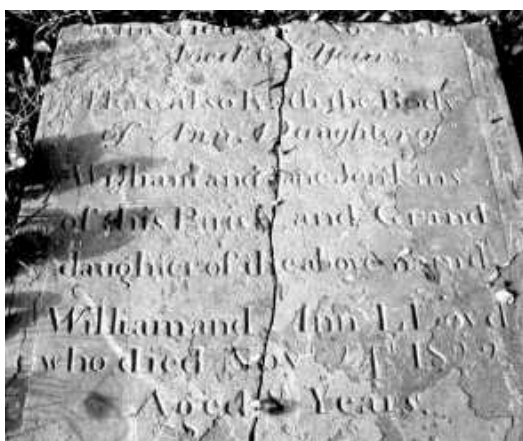 Aged Years.
Here also lieth the Body
of Ann Daughter of
William and Jane Jenkins
of this Parish and Grand
daughter of the above said
William and Ann LLoyd
who died Nov
Aged Years.